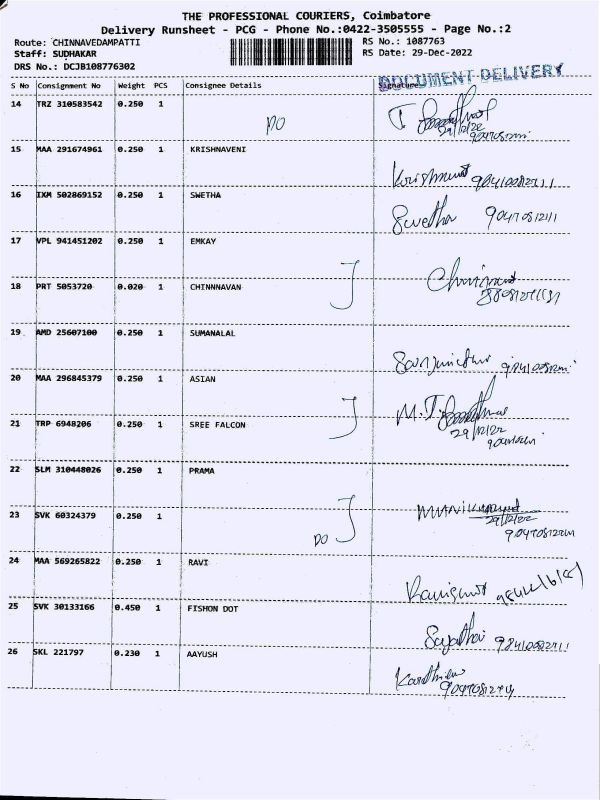 THE PROFESSIONAL COURIERS, Coimbatore
Delivery Runsheet - PCG - Phone No.:0422-3505555 - Page No.:2
Route: CHINNAVEDAMPATTI RS No.: 1087763
Staff: SUDHAKAR RS Date: 29-Dec-2022
DRS No.: DCJB108776302
DOCUMENT DELIVERY
S No Consignment No Weight PCS Consignee Details Signature
14 TRZ 310583542 0.250 1
DO 29/12/22
15 MAA 291674961 0.250 1 KRISHNAVENI
16 IXM 502869152 0.250 1 SWETHA
Swetha
17 VPL 941451202 0.250 1 EMKAY
18 PRT 5053720 0.020 1 CHINNNAVAN
19 AMD 25607100 0.250 1 SUMANALAL
20 MAA 296845379 0.250 1 ASIAN
21 TRP 6948206 0.250 1 SREE FALCON
29/12/22
22 SLM 310448026 0.250 1 PRAMA
23 SVK 60324379 0.250 1
29/12/22
DO
24 MAA 569265822 0.250 1 RAVI
25 SVK 30133166 0.450 1 FISHON DOT
26 SKL 221797 0.230 1 AAYUSH